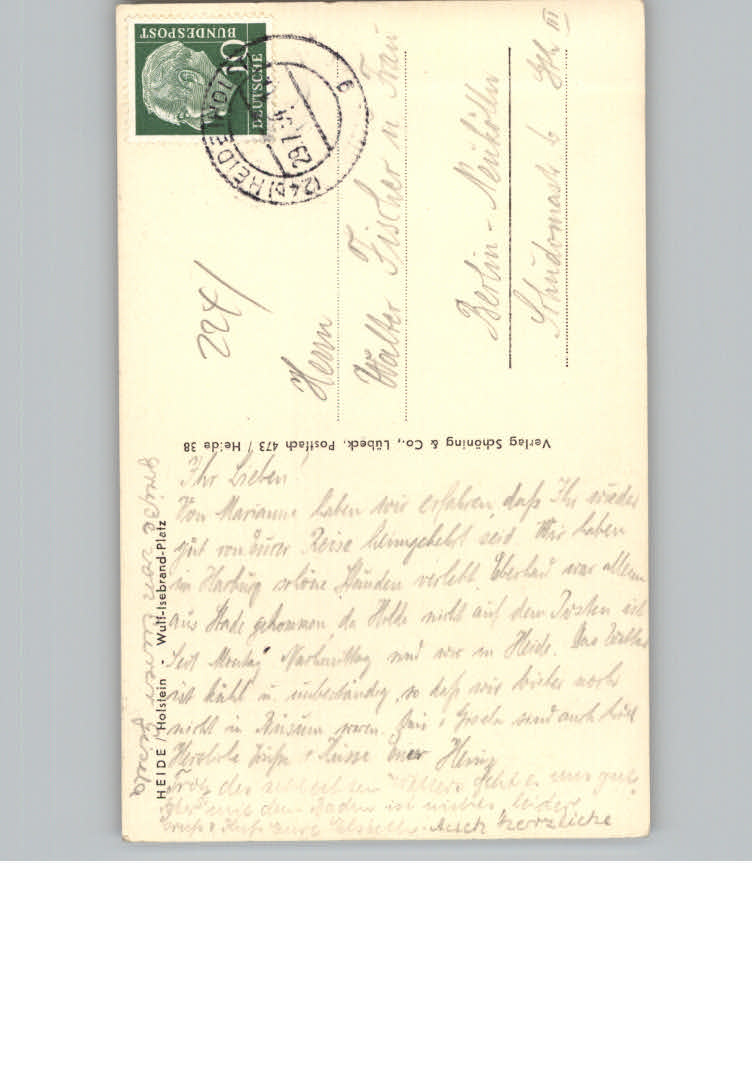 DEUTSCHE
BUNDESPOST
10
(24b) HEIDE (HOLST)
29.7.
224/
Herrn
Walter Fischer u Frau
Berlin - Neukölln
Schudomastr 6 Gh III
Verlag Schöning & Co., Lübeck, Postfach 473 / Heide 38
HEIDE / Holstein - Wulf-Isebrand-Platz
Ihr Lieben!
Von Marianne haben wir erfahren, daß Ihr wieder
gut von Eurer Reise heimgekehrt seid. Wir haben
in Harburg schöne Stunden verlebt. Eberhard war allein
aus Stade gekommen, da Hilde nicht auf dem Posten ist
Seit Montag Nachmittag sind wir in Heide. Das Wetter
ist kühl u. unbeständig, so daß wir bisher noch
nicht in Büsum waren. Gisela sind auch hier
Herzliche Grüße + Küsse Euer Heinz
Trotz des schlechten Wetters geht es uns gut.
Aber mit dem Baden ist nichts leider
Gruß + Kuß Eure Auch herzliche
Grüße von Eurer